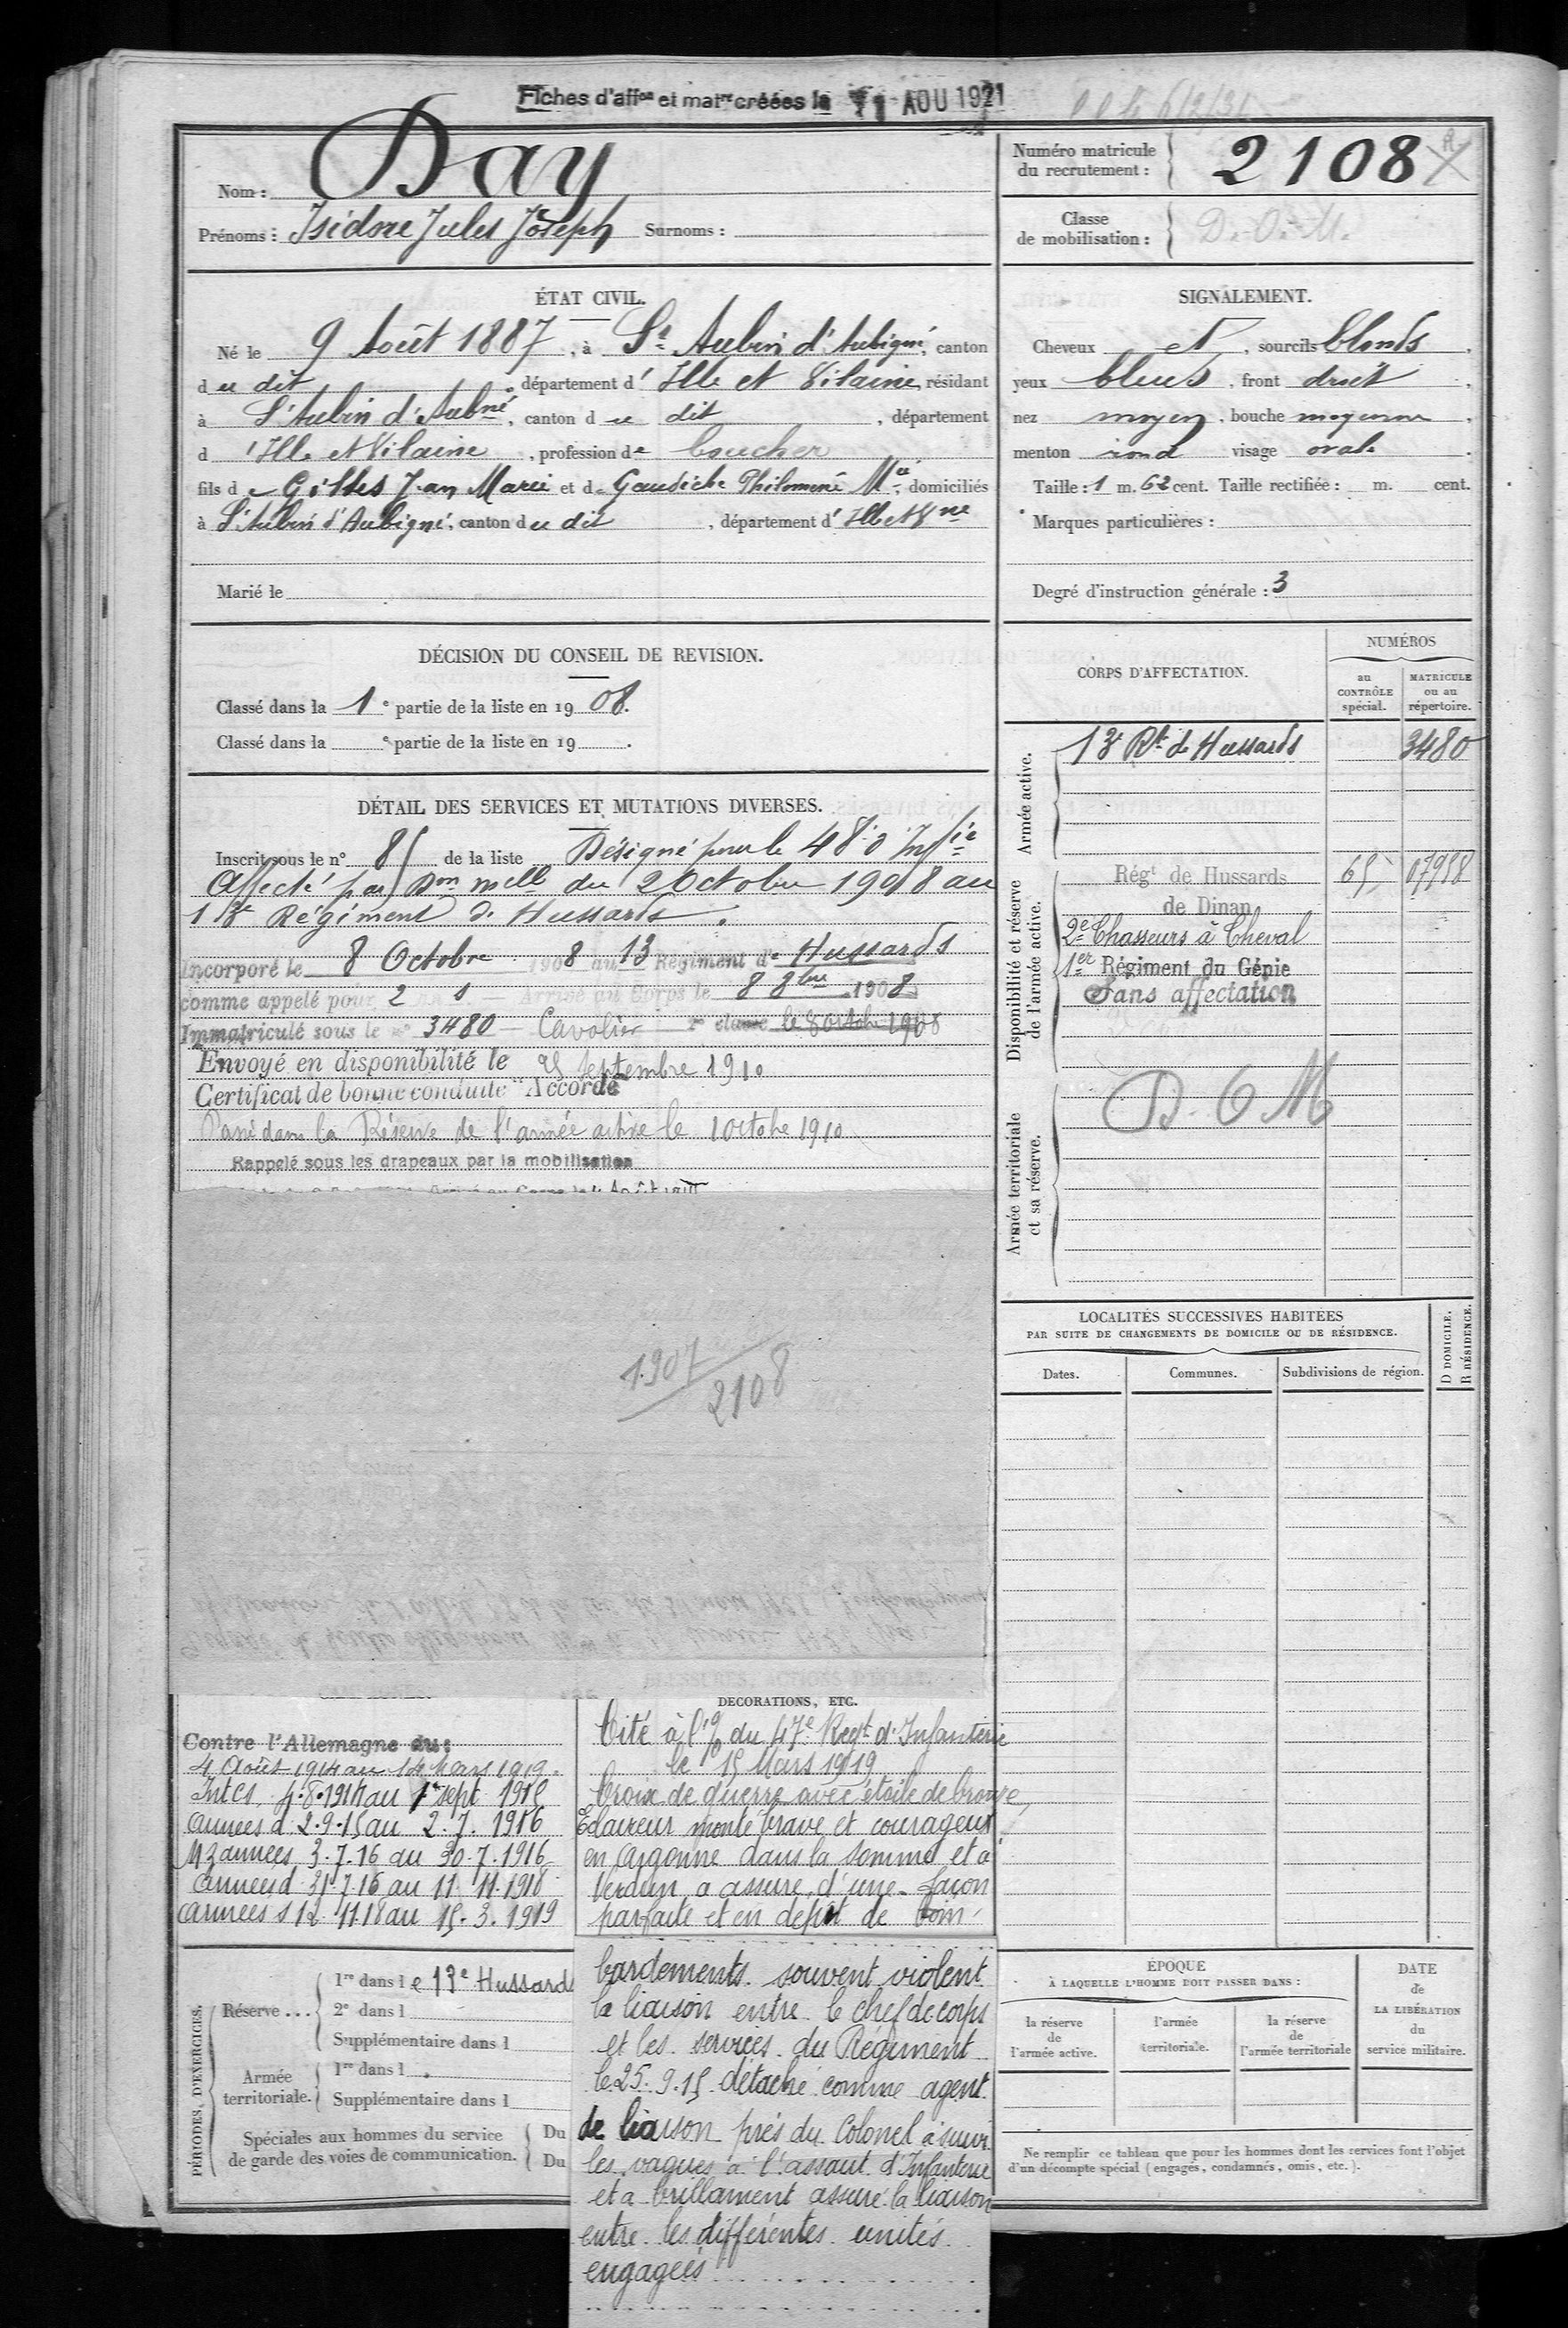 Fiches d'aff^on et mat^re créées le 11 AOU 1921
Nom : Day
Prénoms : Isidore Jules Joseph Surnoms :
Numéro matricule du recrutement : 2108
Classe de mobilisation : D.O.M.
ÉTAT CIVIL.
Né le 9 Août 1887, à S^t Aubin d'Aubigné, canton
du dit, département d'Ille et Vilaine, résidant
à S^t Aubin d'Aub^né, canton du dit, département
d'Ille et Vilaine, profession de boucher
fils de Gilles Jean Marie et de Gaudiche Philomène M^ie, domiciliés
à S^t Aubin d'Aubigné, canton du dit, département d'Ille et V^ne
Marié le
SIGNALEMENT.
Cheveux et, sourcils blonds,
yeux bleus, front droit,
nez moyen, bouche moyenne,
menton rond visage ovale.
Taille : 1 m. 62 cent. Taille rectifiée : m. cent.
Marques particulières :
Degré d'instruction générale : 3
DÉCISION DU CONSEIL DE REVISION.
Classé dans la 1^e partie de la liste en 1908.
Classé dans la ^e partie de la liste en 19 .
DÉTAIL DES SERVICES ET MUTATIONS DIVERSES.
Inscrit sous le n° 85 de la liste Désigné pour le 48^e d'Inf^ie
Affecté par D^on m^elle du 2 Octobre 1908 au
13^e Régiment de Hussards.
Incorporé le 8 Octobre 1908 au 13 Régiment de Hussards
comme appelé pour 2 ans. Arrivé au Corps le 8 8^bre 1908
Immatriculé sous le n° 3480 Cavalier 2^e classe le 8 octobre 1908
Envoyé en disponibilité le 25 Septembre 1910
Certificat de bonne conduite "Accordé"
Passé dans la Réserve de l'armée active le 1 octobre 1910
Rappelé sous les drapeaux par la mobilisation
Arrivé au Corps le 4 Août 1914
1907
2108
CORPS D'AFFECTATION.
NUMÉROS
au CONTRÔLE spécial.
MATRICULE ou au répertoire.
Armée active.
13^e R^t de Hussards 3480
Disponibilité et réserve de l'armée active.
Rég^t de Hussards
de Dinan
2^e Chasseurs à Cheval
1^er Régiment du Génie
Sans affectation
Armée territoriale et sa réserve.
D.O M
LOCALITÉS SUCCESSIVES HABITÉES
PAR SUITE DE CHANGEMENTS DE DOMICILE OU DE RÉSIDENCE.
Dates. Communes. Subdivisions de région. D DOMICILE. R RÉSIDENCE.
Contre l'Allemagne du :
4 Août 1914 au 14 Mars 1919.
Int CS. 4.8.1914 au 1^er sept 1915
Armées d 2.9.15 au 2.7.1916
Mz armées 3.7.16 au 30.7.1916
Armées d 31.7.16 au 11.11.1918
Armées s 12.11.18 au 15.3.1919
DÉCORATIONS, ETC.
Cité à l'o/ du 47^e Reg^t d'Infanterie
le 15 Mars 1919
Croix de guerre avec étoile de bronze,
Eclaireur monté brave et courageux
en Argonne dans la Somme et à
Verdun, a assuré d'une façon
parfaite et en dépit de bom-
bardements souvent violent
la liaison entre le chef de corps
et les services du Régiment
le 25.9.15 détaché comme agent
de liaison près du Colonel a suivi
les vagues à l'assaut d'Infanterie
et a brillament assuré la liaison
entre les différentes unités
engagées
PÉRIODES D'EXERCICES.
Réserve... 1^re dans le 13^e Hussards
2^e dans l
Supplémentaire dans l
Armée territoriale. 1^re dans l
Supplémentaire dans l
Spéciales aux hommes du service
de garde des voies de communication. Du
Du
ÉPOQUE
À LAQUELLE L'HOMME DOIT PASSER DANS :
la réserve de l'armée active.
l'armée territoriale.
la réserve de l'armée territoriale
DATE de LA LIBÉRATION du service militaire.
Ne remplir ce tableau que pour les hommes dont les services font l'objet
d'un décompte spécial (engagés, condamnés, omis, etc.).